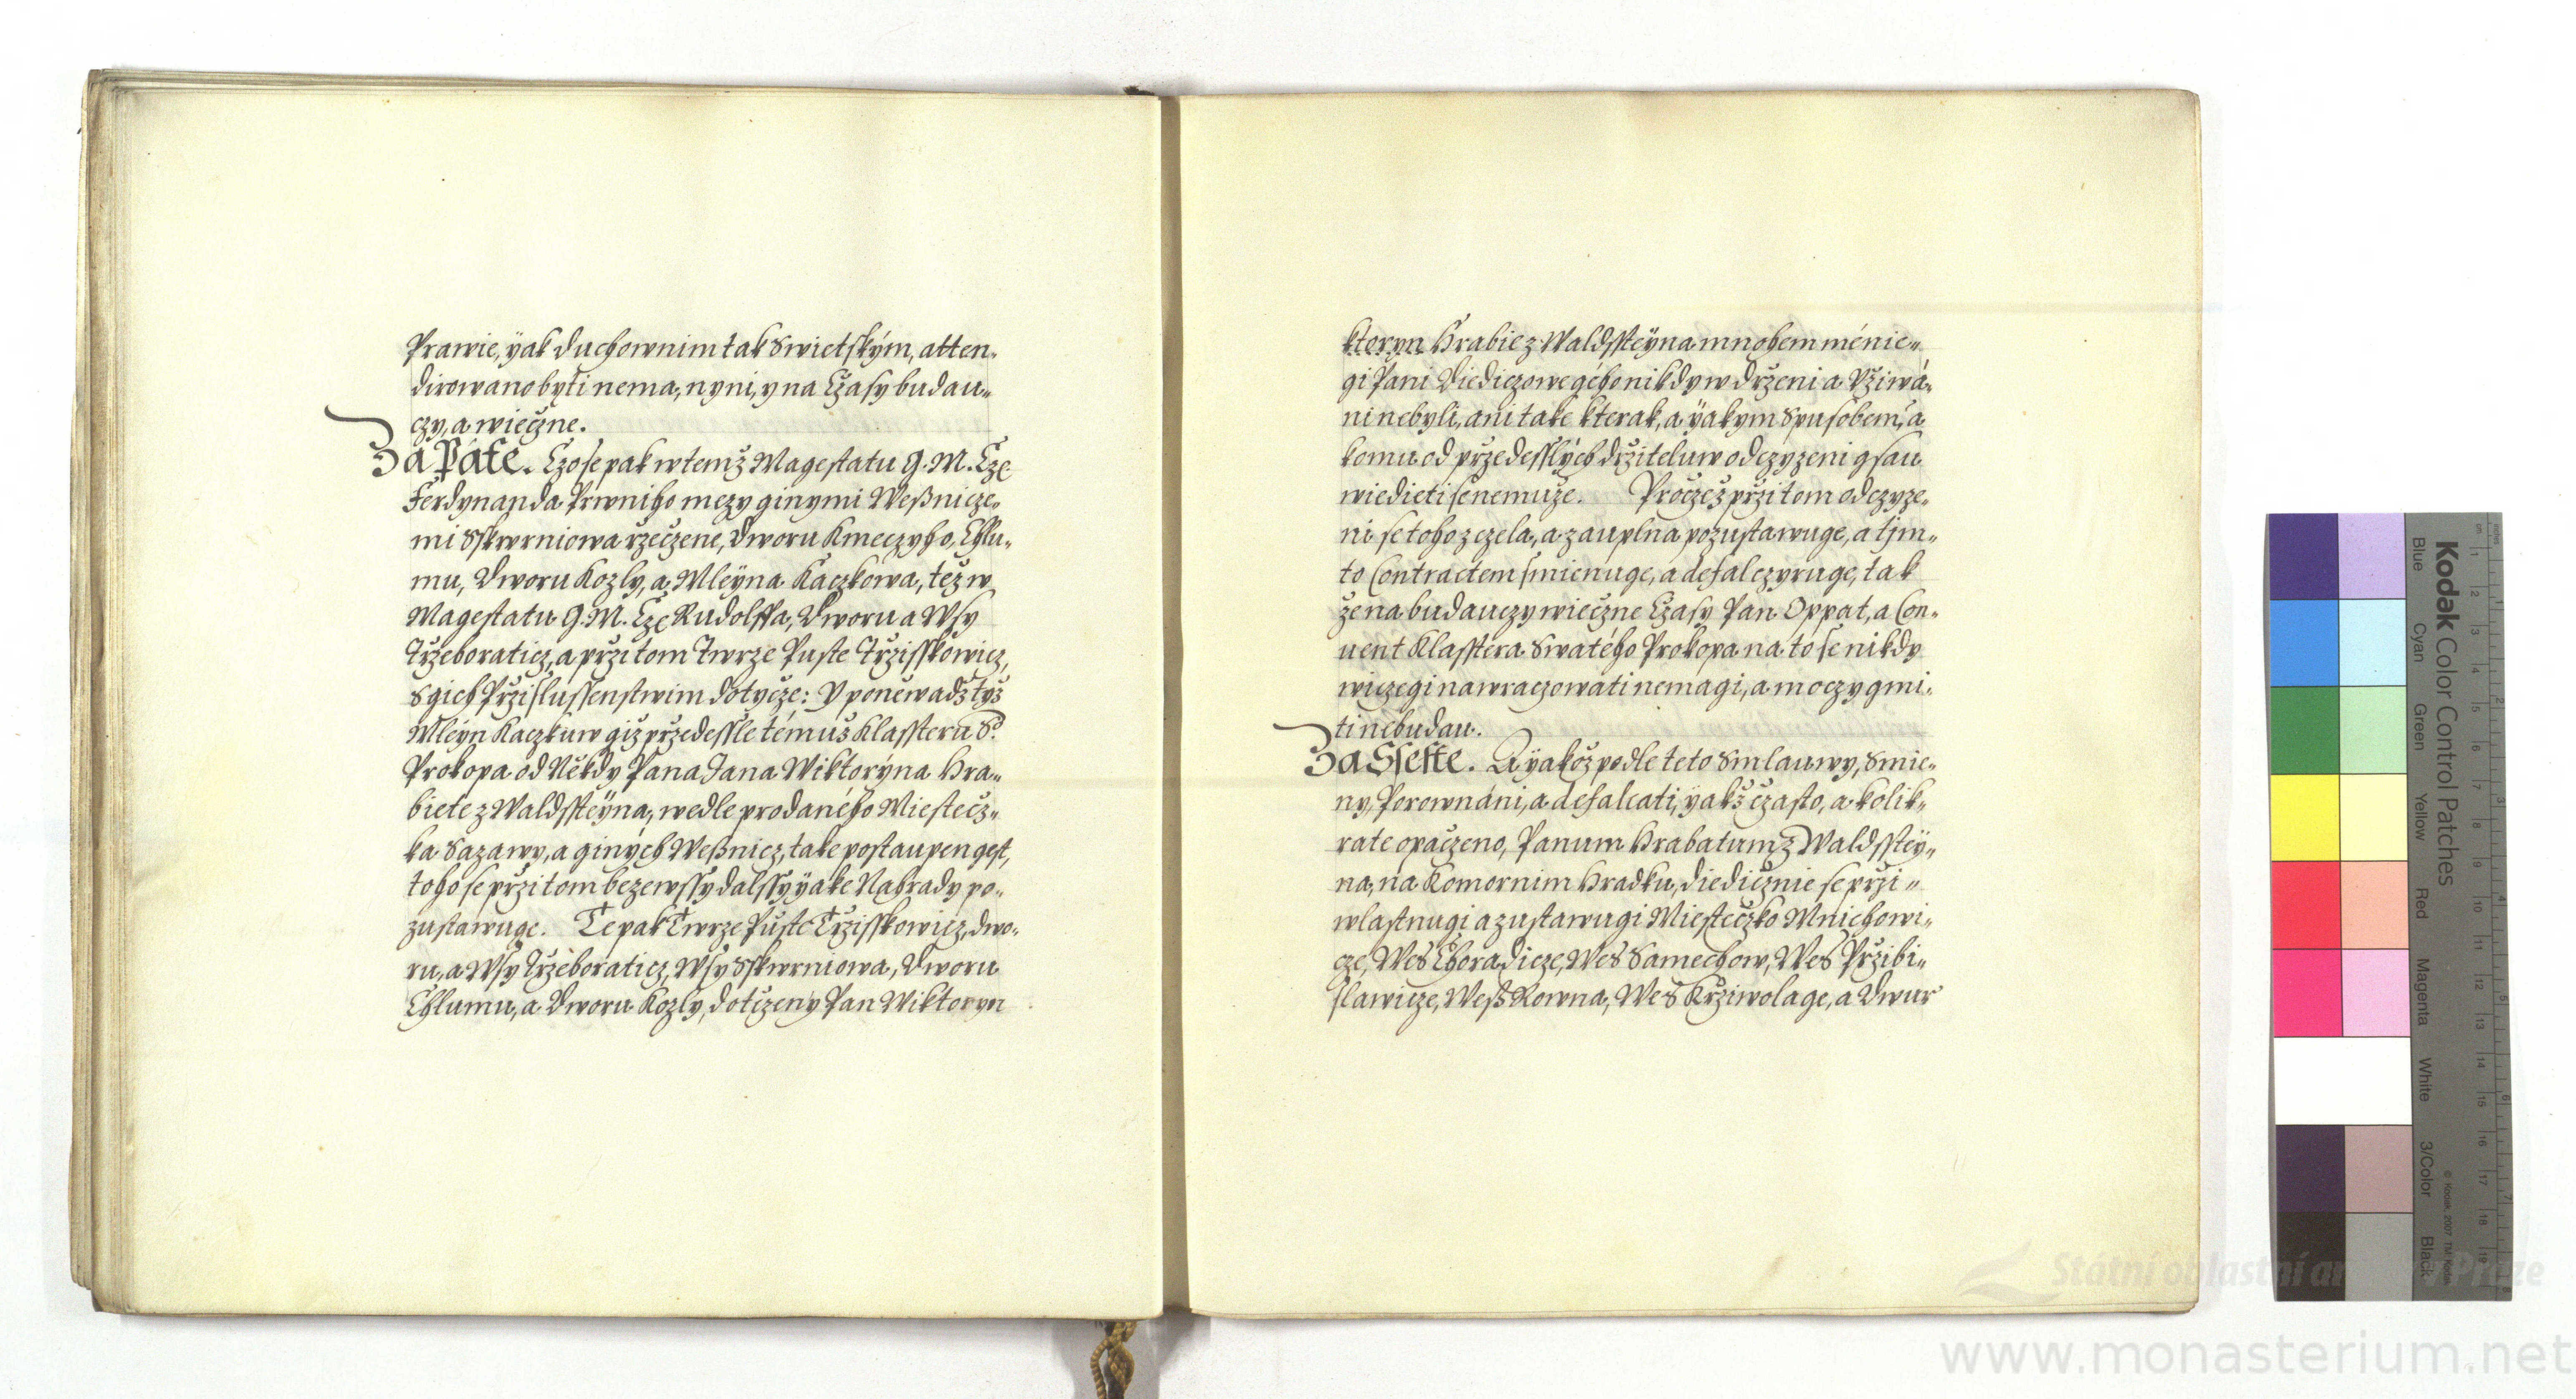 Prawie, yak duchownim tak Swietským, atten„
dirowano byti nema, nyni, y na Czasy budau„
czy, a wieczne.
Za Páte. Czo se pak w temž Magestatu G. M. Cze
Ferdynanda Prwniho mezy ginymi Wesnicze„
mi Sskwrniowa rzeczene, Dworu Kmeczyho, Chlu„
mu, Dworu Kozly, a Mleÿna Kaczkowa, též w
Magestatu G. M. Cze Rudolffa, Dworu a Wsy
Trzeboraticz, a przitom Twrze Puste Trzisskowicz,
S gich Przislussenstwim dotycze: Y poněwadž týž
Mlėyn Kaczkuw giž przedessle témuž Klasstera Sº.
Prokopa od Někdy Pana Jana Wiktorýna Hra„
biete z Waldssteÿna, wedle prodaného Miestecz„
ka Sazawy, a giných Wesnicz, také postaupen gest,
toho se przitom beze wssy dalssy yake Nahrady po„
zustawuge. Te pak Twrze Pusté Trzisskowicz, dwo„
ru, a Wsy Trzeboraticz, Wsy Sskwrniowa, Dworu
Chlumu, a Dworu Kozly, dotczeny Pan Wiktoryn
ktoryn Hrabie z Waldssteÿna mnohem ménie„
gi Pani Diediczowe gého nikdy w drżeni a Vżiwá„
ni nebyli, ani také kterak, a ÿakym Spusobem, a
komu od przedesslých držiteluw odczyzeni gsau
wiedieti se nemuže. Proczež przitom odczyze„
ni se toho z czela, a zauplna pozustawuge, a tjm„
to Contractem smienuge, a defalczyruge, tak
že na budauczy wieczne Czasy Pan Oppat, a Con„
uent Klasstera Swatého Prokopa na to se nikdy
wiczegi nawraczowati nemagi, a moczy gmi„
ti nebudau.
Za Ssesté. A ÿakož podle teto Smlauwy, Smie„
ny, Porownáni, a defalcati, ÿakž często, a kolik„
rate opaczeno, Panum Hrabatum z Waldssteÿ„
na, na Komornim Hradku, diedicznie se przi„
wlastnugi a zustawugi Miesteczko Mnichowi„
cze, Wes Choradicze, Wes Samechow, Wes Przibi„
slawicze, Wess Rowna, Wes Krziwolage, a Dwur
Kodak Color Control Patches
Blue Cyan Green Yellow Red Magenta White 3/Color Black
© Kodak, 2007 TM: Kodak
www.monasterium.net